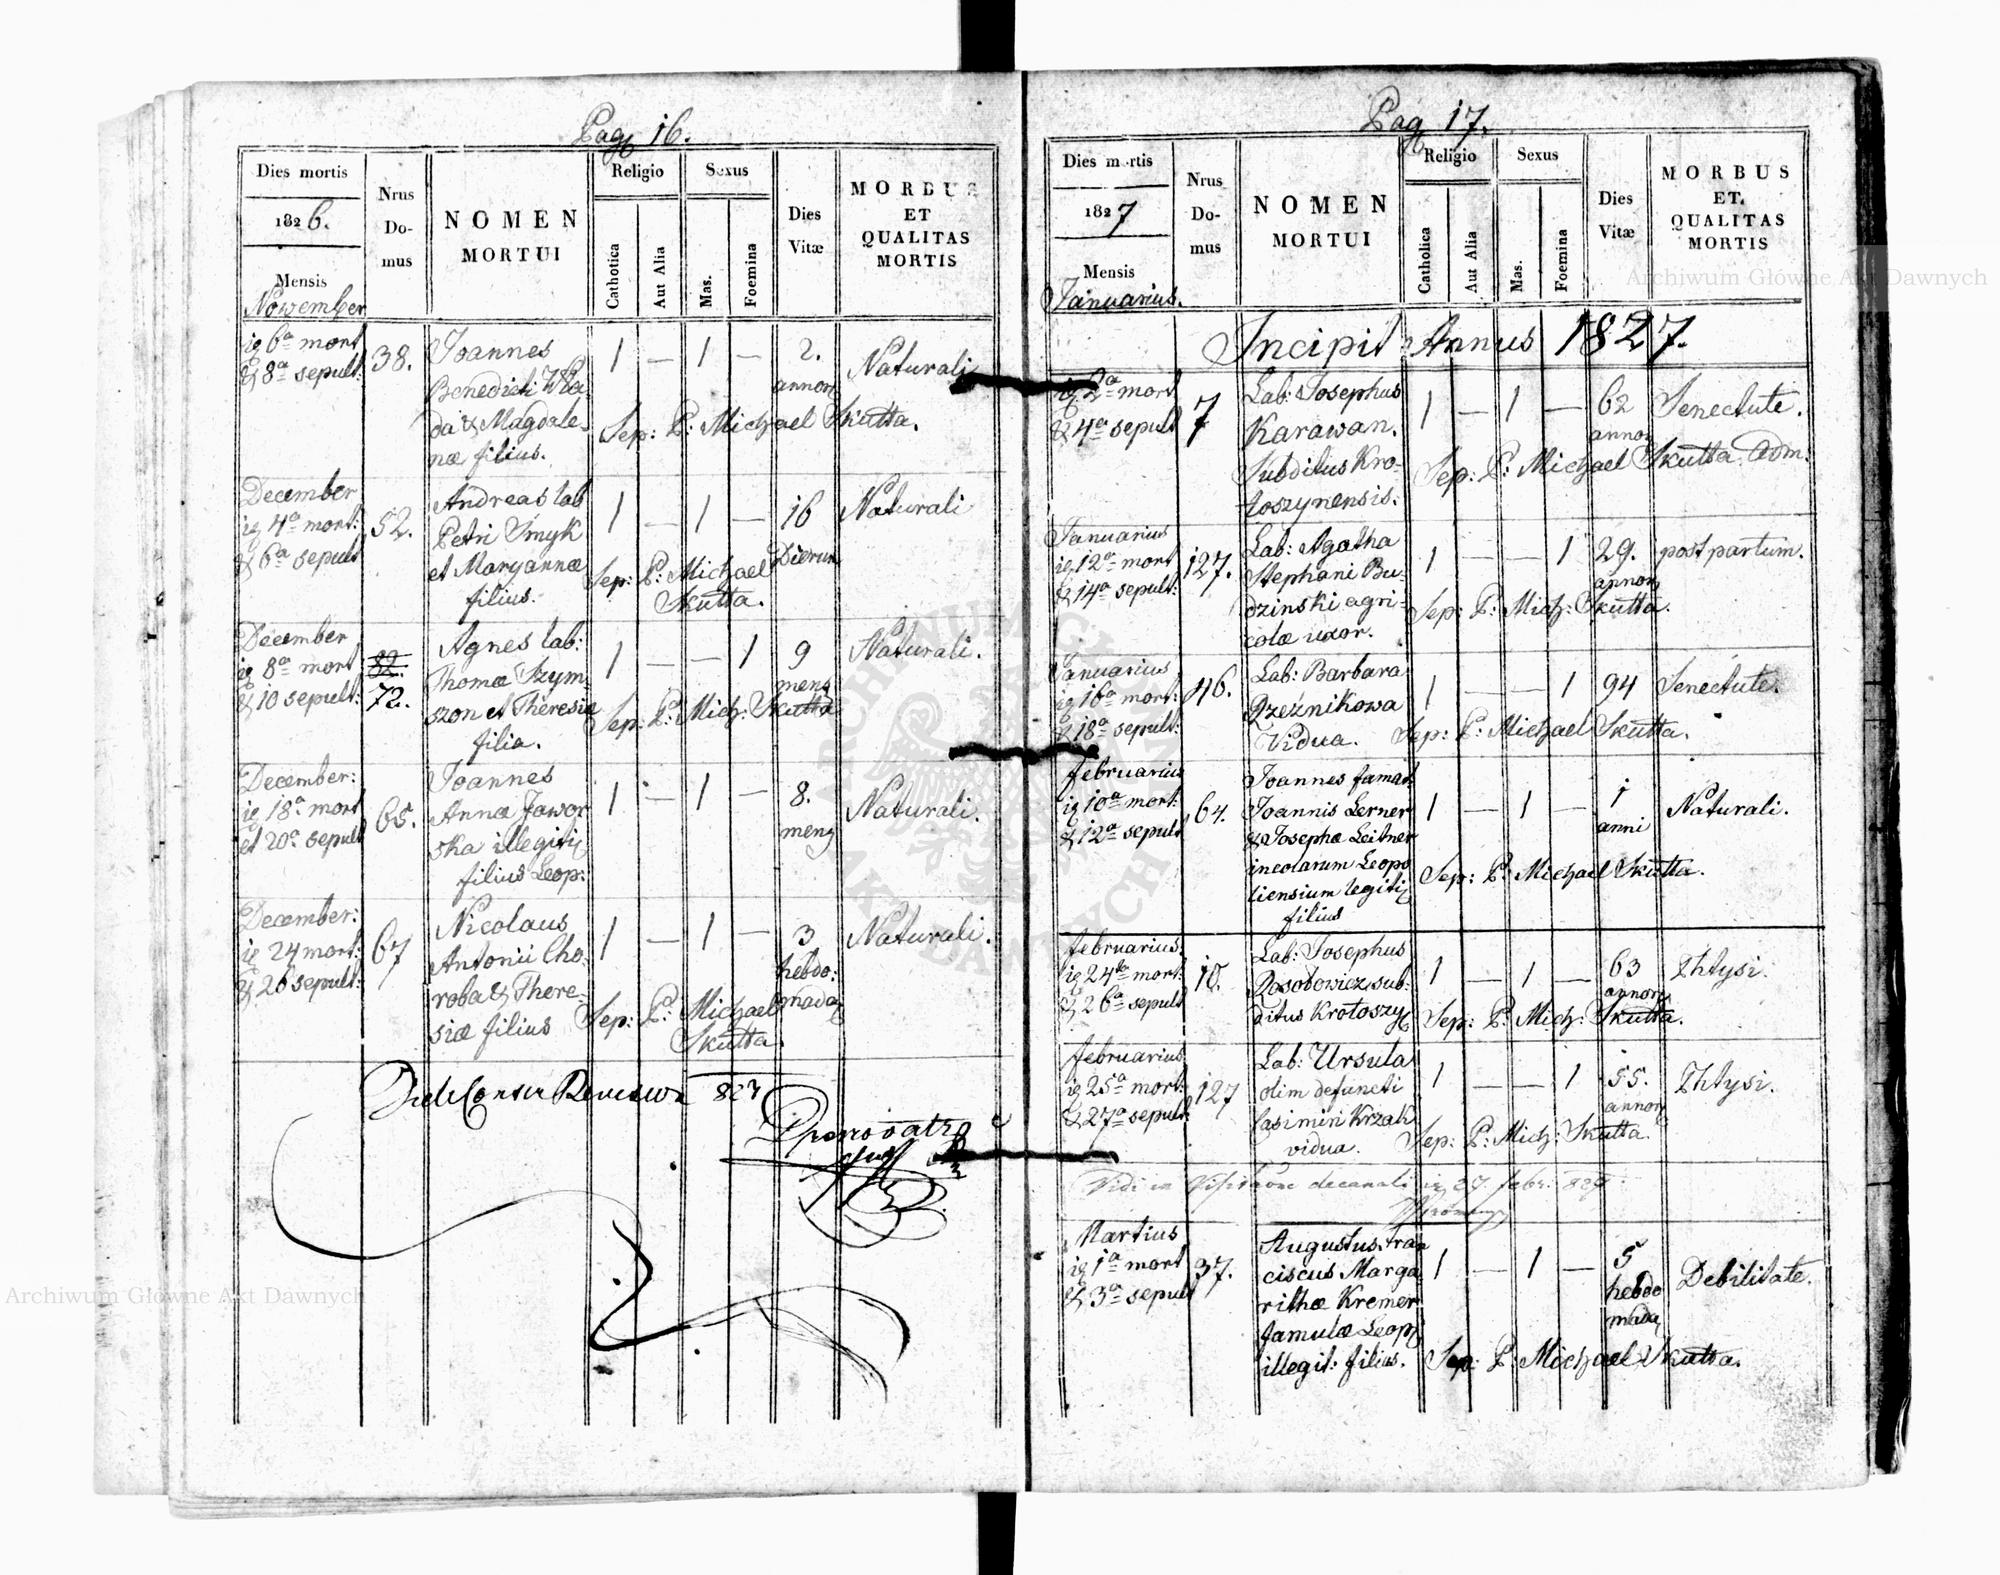 Pag 16.
Dies mortis
1826.
Mensis
Nowember
Nrus
Do-
mus
NOMEN
MORTUI
Religio
Cathotica
Aut Alia
Sexus
Mas.
Foemina
Dies
Vitæ
MORBUS
ET
QUALITAS
MORTIS
6a mort
& 8a sepult:
38.
Joannes
Benedicti Wla-
da & Magdale-
næ filius.
1 — 1 —
2.
annor
Naturali
Sep: P: Michael Skutta.
December
4a mort:
& 6a sepult
52.
Andreas lab
Petri Smyk
et Maryannæ
filius.
1 — 1 —
16
Dierum
Naturali
Sep: P: Michael
Skutta.
December
8a mort
& 10 sepult:
82.
72.
Agnes lab:
Thomæ Szym
szon et Theresiæ
filia.
1 — — 1
9
mens
Naturali.
Sep: P: Mich: Skutta
December:
18a mort
et 20a sepult
65.
Joannes
Annæ Jawor
ska illegiti
filius Leop:
1 — 1 —
8.
mens
Naturali.
December:
24 mort:
& 26 sepult:
67
Nicolaus
Antonii Cho-
roba & There-
siæ filius
1 — 1 —
3
hebdo:
mada
Naturali.
Sep: P: Michael
Skutta.
827
Pag 17.
Dies mortis
1827
Mensis
Januarius.
Nrus
Do-
mus
NOMEN
MORTUI
Religio
Catholica
Aut Alia
Sexus
Mas.
Foemina
Dies
Vitæ
MORBUS
ET.
QUALITAS
MORTIS
Incipit Annus 1827.
2a mort
& 4a sepult
7
Lab: Josephus
Karawan.
Subditus Kro-
toszynensis.
1 — 1 —
62
annor
Senectute.
Sep: P: Michael Skutta Adm:
Januarius
12a mort
& 14a sepult:
127.
Lab: Agatha
Stephani Bu-
dzinski agri-
colæ uxor.
1 — — 1
29.
annor
post partum.
Sep: P: Mich: Skutta.
Januarius
16a mort:
& 18a sepult:
46.
Lab: Barbara
Rzeźnikowa
Vidua.
1 — — 1
94
Senectute.
Sep: P: Michael Skutta.
februarius
10a mort:
& 12a sepult
64.
Joannes famat:
Joannis Lerner
& Josephæ Leitner
incolarum Leopo
liensium legiti
filius
1 — 1 —
1
anni
Naturali.
Sep: P: Michael Skutta.
februarius.
24ta mort:
& 26a sepult
10.
Lab: Josephus
Rosotowicz sub-
ditus Krotoszy
1 — 1 —
63
annor
Phtysi.
Sep: P: Mich: Skutta.
februarius
25a mort:
& 27a sepult:
127
Lab: Ursula
olim defuncti
Casimiri Krzak
vidua.
1 — — 1
55.
annor
Phtysi.
Sep: P: Mich: Skutta.
Vidi in Visitatione decanali 27. febr: 827.
Martius
1a mort
& 3a sepult
37.
Augustus, Fran
ciscus Marga
rithæ Kremer
famulæ Leop
illegit: filius.
1 — 1 —
5
hebdo
mada
Debilitate.
Sep: P: Michael Skutta.
Archiwum Główne Akt Dawnych
Archiwum Główne Akt Dawnych
ARCHIWUM GŁÓWNE AKT DAWNYCH